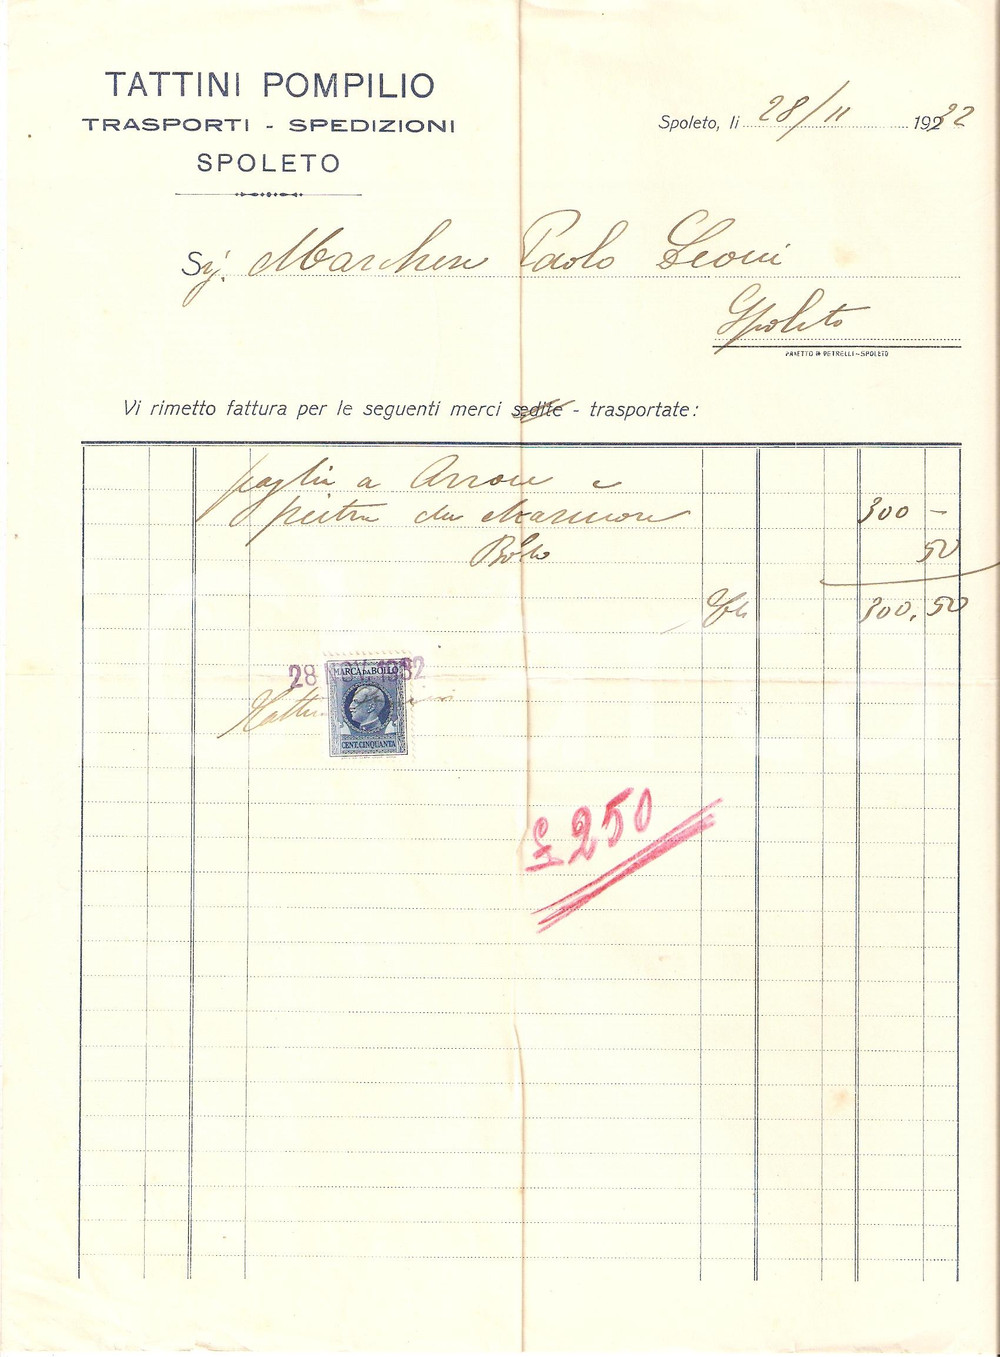 TATTINI POMPILIO
TRASPORTI - SPEDIZIONI
SPOLETO
Spoleto, li 28/11 1932
Sig. Marchese Paolo Leoni
Spoleto
Vi rimetto fattura per le seguenti merci sedite - trasportate:
paglia a Arrone e
pietra da Marmore 300 -
Bollo 50
300,50
28 NOV 1932
MARCA DA BOLLO
CENT. CINQUANTA
£ 250